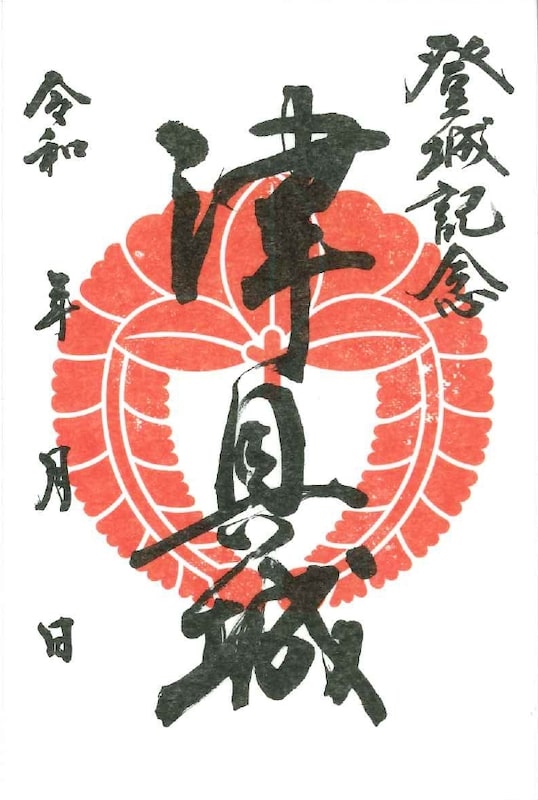 登城記念
津具城
令和 年 月 日